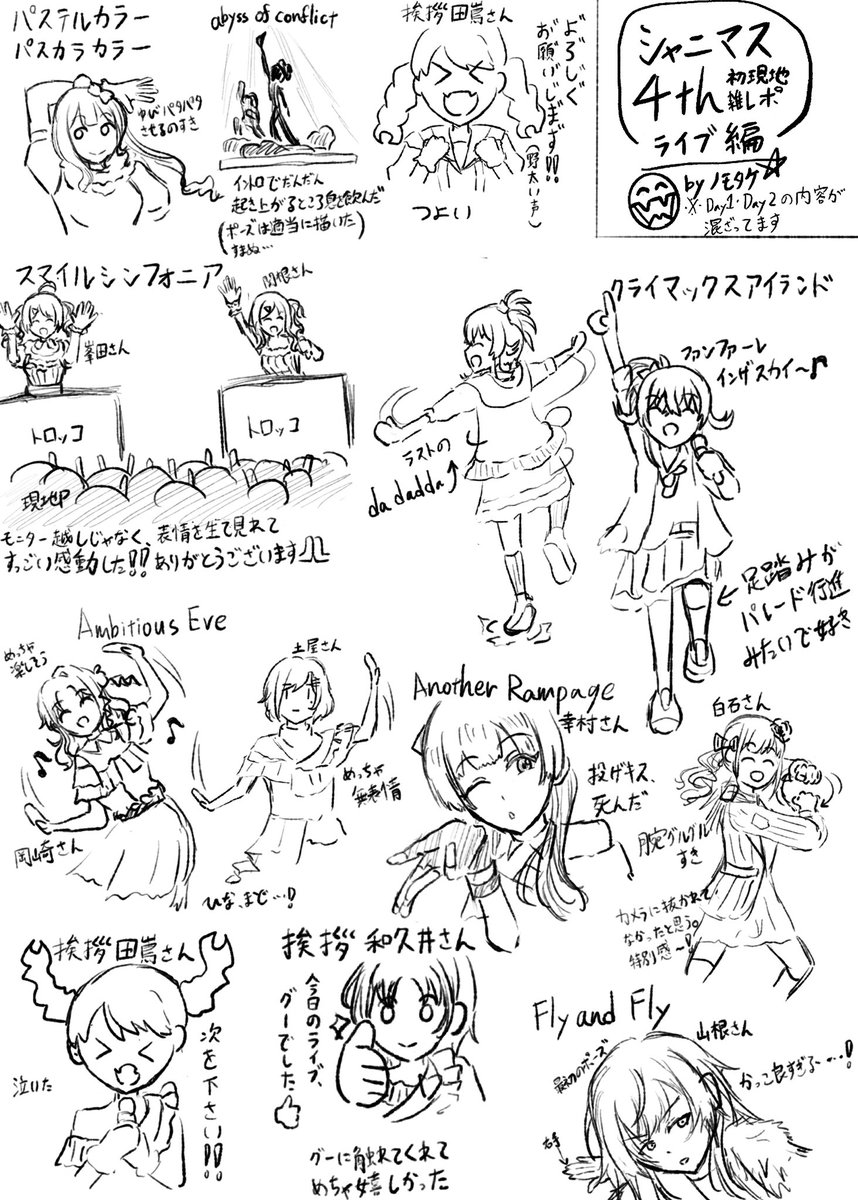 シャニマス
4th 初現地
雑レポ
ライブ編
by ノモタケ
※Day1・Day2の内容が
混ざってます
パステルカラー
パスカラカラー
ゆびパタパタ
させるのすき
abyss of conflict
イントロでだんだん
起き上がるところ息を飲んだ
(ポーズは適当に描いた
すまぬ…)
挨拶 田嶌さん
よろしく
お願いしまず!!
(野太い声)
つよい
スマイルシンフォニア
峯田さん
関根さん
トロッコ
トロッコ
現地
モニター越しじゃなく、表情を生で見れて
すっごい感動した!!ありがとうございます
クライマックスアイランド
ファンファーレ
インザスカイ〜♪
ラストの
da dadda↑
←足踏みが
パレード行進
みたいで好き
Ambitious Eve
めっちゃ
楽しそう
岡崎さん
土屋さん
めっちゃ
無表情
ひな、まで…!
Another Rampage
幸村さん
投げキス、
死んだ
白石さん
腕グルグル
すき
カメラに抜かれて
なかったと思う。
特別感〜!
挨拶 田嶌さん
泣いた
次を下さい!!
挨拶 和久井さん
今日のライブ、
グーでした
グーに触れてくれて
めちゃ嬉しかった
Fly and Fly
山根さん
最初のポーズ
右手
かっこ良すぎる……!